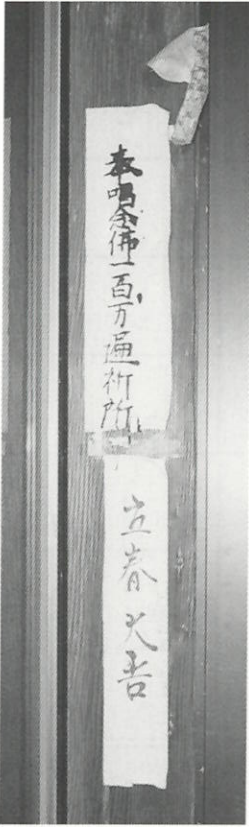 奉唱念佛一百万遍祈所
立春大吉